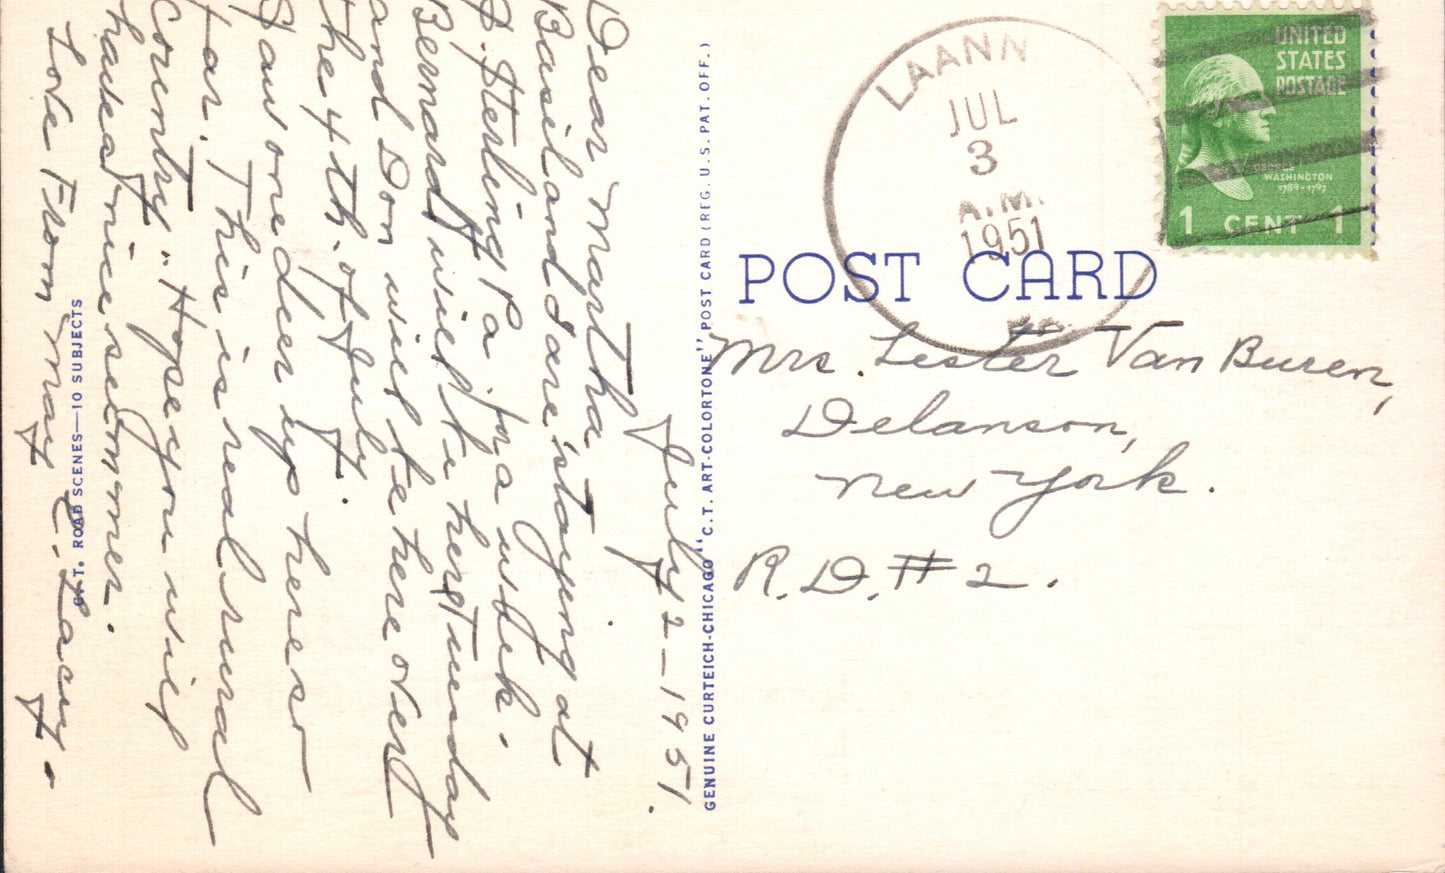 July 2 - 1951.
Dear Martha
Basil and I are staying at
S. Sterling Pa. for a week.
Bernard will be here Tuesday
and Don will be here over
the 4th. of July.
Saw one deer up here so
far. This is real rural
country. Hope you will
have a nice summer.
Love From May E. Lacey.
C.T. ROAD SCENES—10 SUBJECTS
GENUINE CURTEICH-CHICAGO "C.T. ART-COLORTONE" POST CARD (REG. U.S. PAT. OFF.)
LAANN
JUL
3
A.M.
1951
UNITED
STATES
POSTAGE
GEORGE
WASHINGTON
1789-1797
1 CENT 1
POST CARD
Mrs. Lester Van Buren,
Delanson,
New York.
R.D. #2.